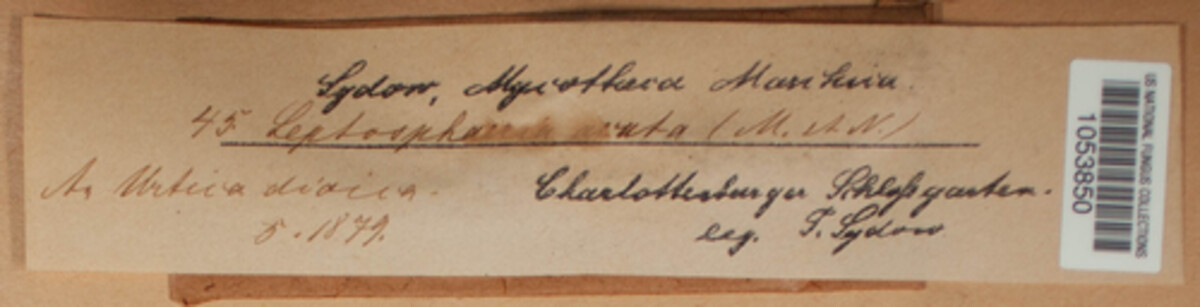 Sydow, Mycotheca Marchica.
45. Leptosphaeria (M. et N.)
An Urtica dioica.
5. 1879.
Charlottenburger Schloßgarten.
leg. P. Sydow
US NATIONAL FUNGUS COLLECTIONS
1053850